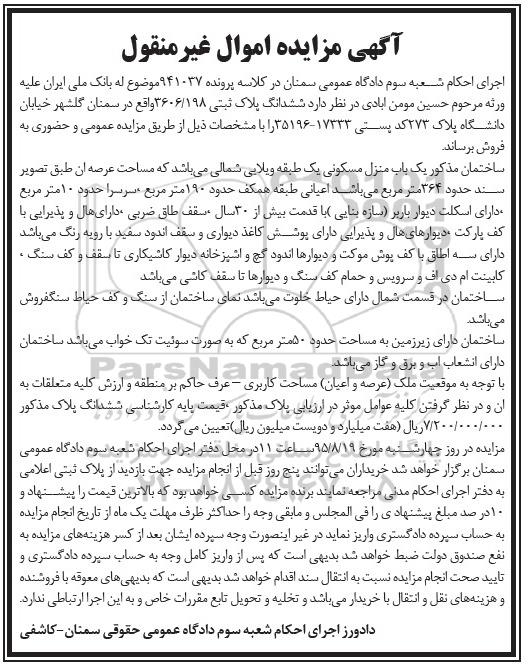 آگهی مزایده اموال غیرمنقول
اجرای احکام شعبه سوم دادگاه عمومی سمنان در کلاسه پرونده ۹۴۱۰۳۷موضوع له بانک ملی ایران علیه
ورثه مرحوم حسین مومن ابادی در نظر دارد ششدانگ پلاک ثبتی ۳۶۰۶/۱۹۸واقع در سمنان گلشهر خیابان
دانشگاه پلاک ۲۷۳کد پستی ۱۷۳۳۳-۳۵۱۹۶را با مشخصات ذیل از طریق مزایده عمومی و حضوری به
فروش برساند.
ساختمان مذکور یک باب منزل مسکونی یک طبقه ویلایی شمالی می‌باشد که مساحت عرصه ان طبق تصویر
سند حدود ۳۶۴متر مربع می‌باشد اعیانی طبقه همکف حدود ۱۹۰متر مربع ،سرسرا حدود ۱۰متر مربع
،دارای اسکلت دیوار باربر (سازه بنایی )با قدمت بیش از ۳۰سال ،سقف طاق ضربی ،دارای‌هال و پذیرایی با
کف پارکت ،دیوارهای‌هال و پذیرایی دارای پوشش کاغذ دیواری و سقف اندود سفید با رویه رنگ می‌باشد
دارای سه اطاق با کف پوش موکت و دیوارها اندود گچ و اشپزخانه دیوار کاشیکاری تا سقف و کف سنگ ،
کابینت ام دی اف و سرویس و حمام کف سنگ و دیوارها تا سقف کاشی می‌باشد
ساختمان در قسمت شمال دارای حیاط خلوت می‌باشد نمای ساختمان از سنگ و کف حیاط سنگفروش
می‌باشد.
ساختمان دارای زیرزمین به مساحت حدود ۵۰متر مربع که به صورت سوئیت تک خواب می‌باشد ساختمان
دارای انشعاب اب و برق و گاز می‌باشد.
با توجه به موقعیت ملک (عرصه و اعیان) مساحت کاربری – عرف حاکم بر منطقه و ارزش کلیه متعلقات به
ان و در نظر گرفتن کلیه عوامل موثر در ارزیابی پلاک مذکور ،قیمت پایه کارشناسی ششدانگ پلاک مذکور
۷/۲۰۰/۰۰۰/۰۰۰ریال (هفت میلیارد و دویست میلیون ریال)تعیین می‌گردد.
مزایده در روز چهارشنبه مورخ ۹۵/۸/۱۹ساعت ۱۱در محل دفتر اجرای احکام شعبه سوم دادگاه عمومی
سمنان برگزار خواهد شد خریداران می‌توانند پنج روز قبل از انجام مزایده جهت بازدید از پلاک ثبتی اعلامی
به دفتر اجرای احکام مدنی مراجعه نمایند برنده مزایده کسی خواهد بود که بالاترین قیمت را پیشنهاد و
۱۰در صد مبلغ پیشنهادی را فی المجلس و مابقی وجه را حداکثر ظرف مهلت یک ماه از تاریخ انجام مزایده
به حساب سپرده دادگستری واریز نماید در غیر اینصورت وجه سپرده ایشان بعد از کسر هزینه‌های مزایده به
نفع صندوق دولت ضبط خواهد شد بدیهی است که پس از واریز کامل وجه به حساب سپرده دادگستری و
تایید صحت انجام مزایده نسبت به انتقال سند اقدام خواهد شد بدیهی است که بدیهی‌های معوقه با فروشنده
و هزینه‌های نقل و انتقال با خریدار می‌باشد و تخلیه و تحویل تابع مقررات خاص و به این اجرا ارتباطی ندارد.
دادورز اجرای احکام شعبه سوم دادگاه عمومی حقوقی سمنان-کاشفی
ParsNamadData